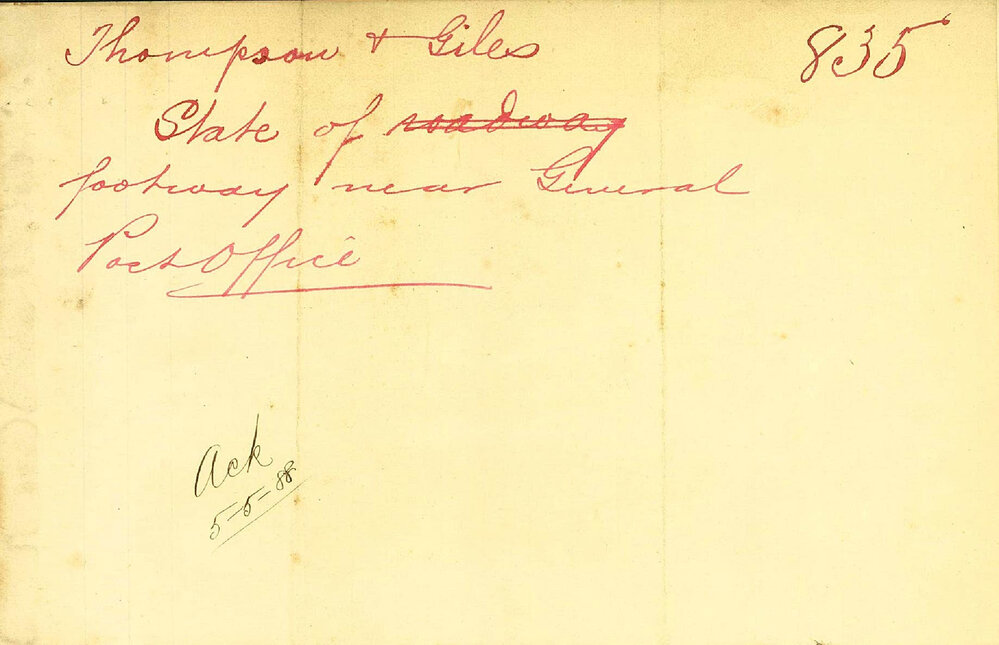 Thompson & Giles
835
State of roadway
footway near General
Post Office
Ack
5-5-88